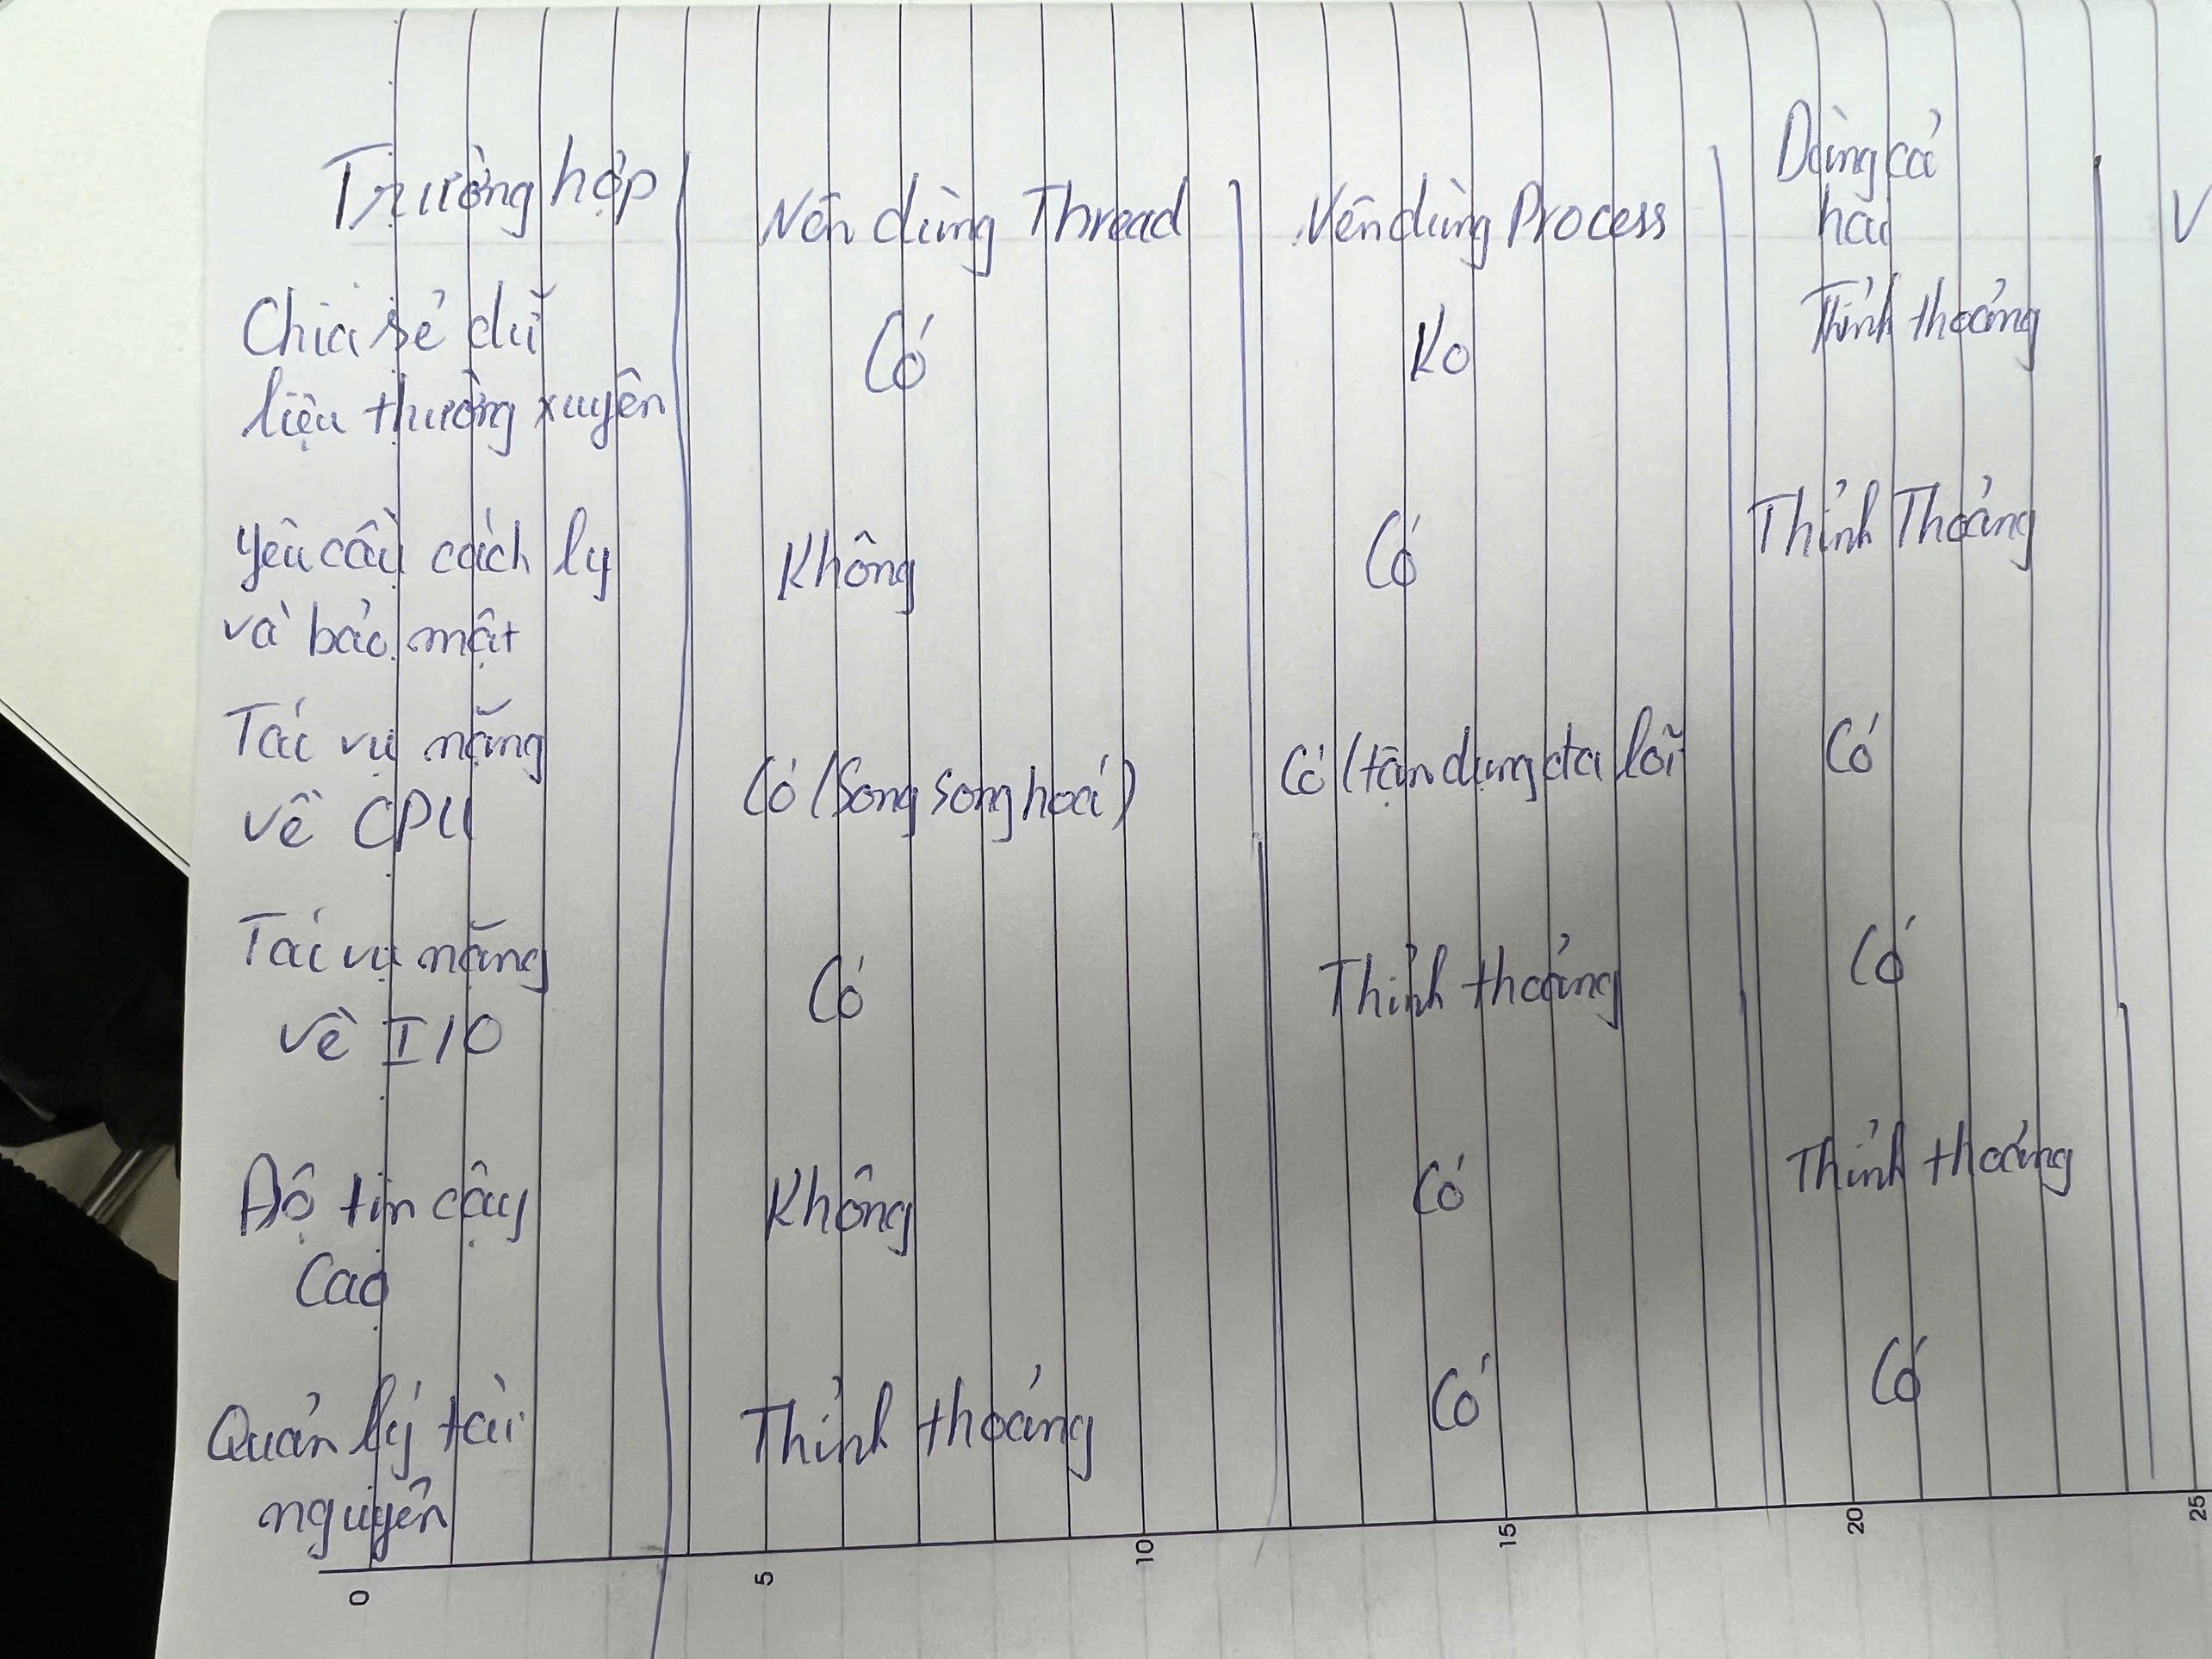 Trường hợp Nên dùng Thread Nên dùng Process Dùng cả hai V
Chia sẻ dữ liệu thường xuyên Có Ko Thỉnh thoảng
Yêu cầu cách ly và bảo mật Không Có Thỉnh Thoảng
Tác vụ nặng về CPU Có (Song song hoá) Có (tận dụng đa lõi Có
Tác vụ nặng về I/O Có Thỉnh thoảng Có
Độ tin cậy Cao Không Có Thỉnh thoảng
Quản lý tài nguyên Thỉnh thoảng Có Có
0 5 10 15 20 25